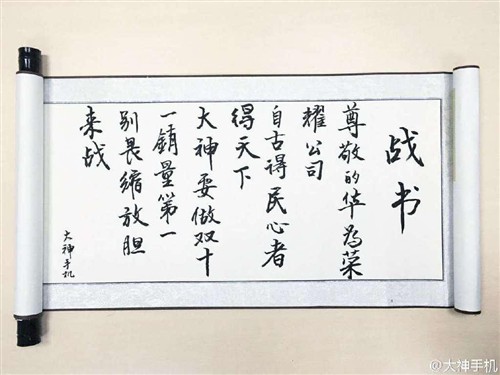 战书
尊敬的华为荣
耀公司
自古得民心者
得天下
大神要做双十
一销量第一
别畏缩放胆
来战
大神手机
@大神手机